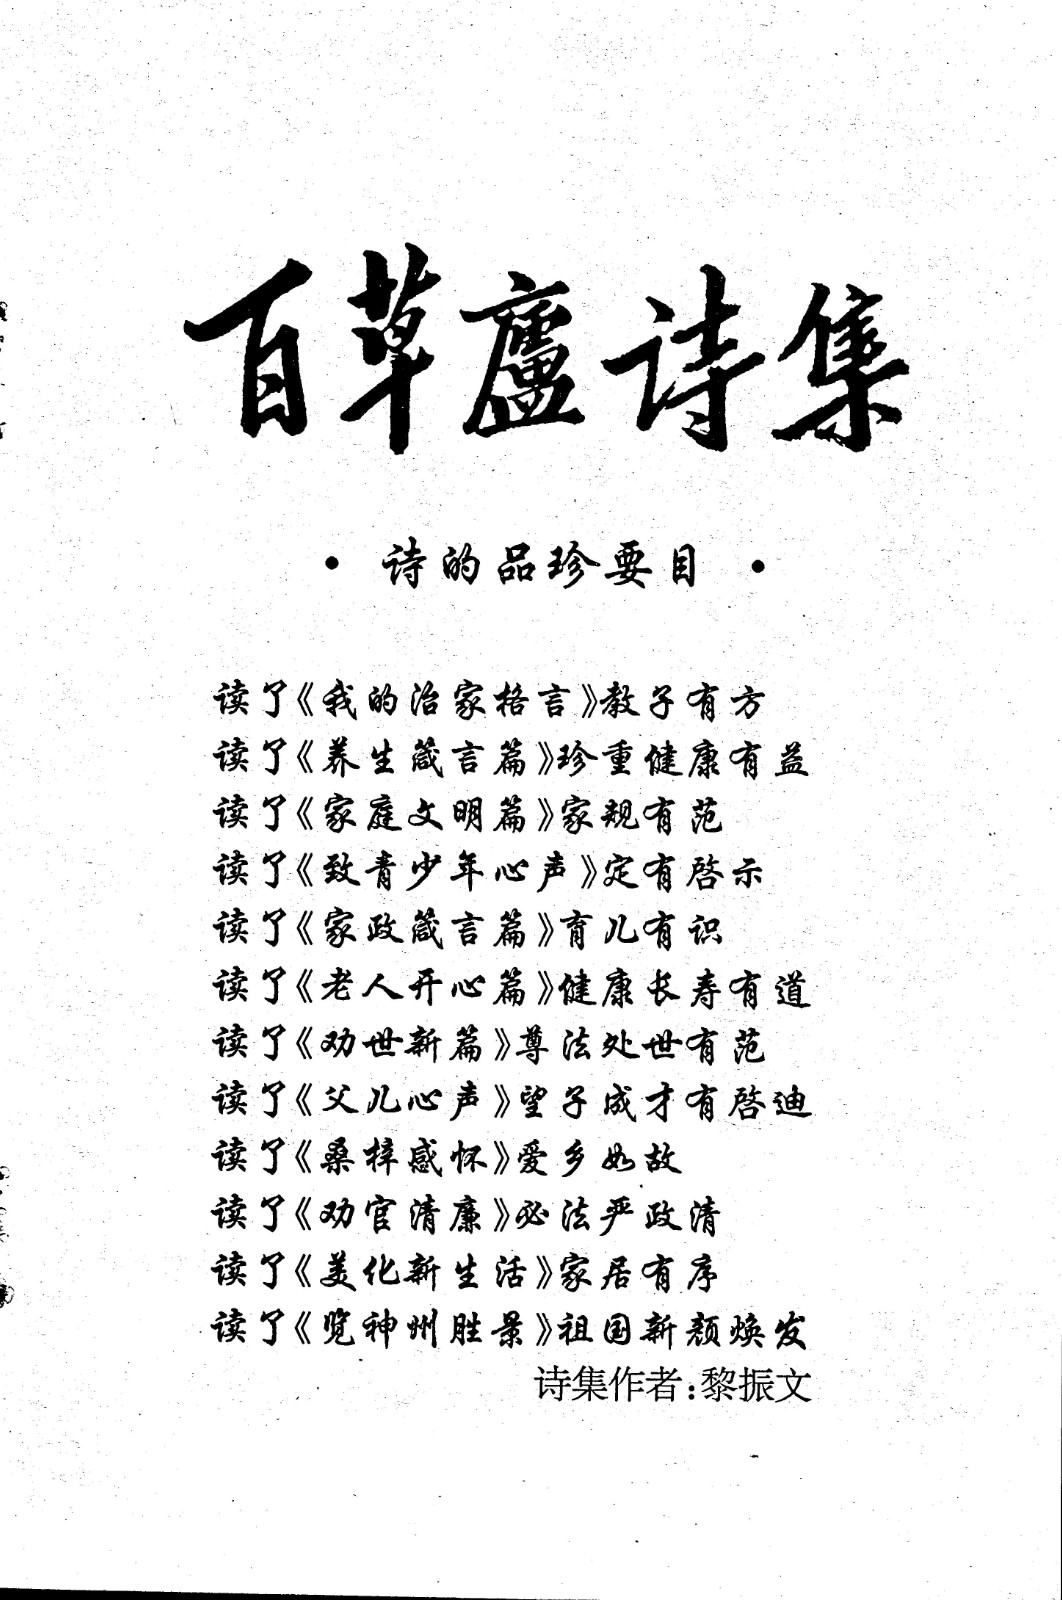 百草廬诗集
· 诗的品珍要目 ·
读了《我的治家格言》教子有方
读了《养生箴言篇》珍重健康有益
读了《家庭文明篇》家规有范
读了《致青少年心声》定有启示
读了《家政箴言篇》育儿有识
读了《老人开心篇》健康长寿有道
读了《劝世新篇》尊法处世有范
读了《父儿心声》望子成才有启迪
读了《桑梓感怀》爱乡如故
读了《劝官清廉》必法严政清
读了《美化新生活》家居有序
读了《览神州胜景》祖国新颜焕发
诗集作者:黎振文